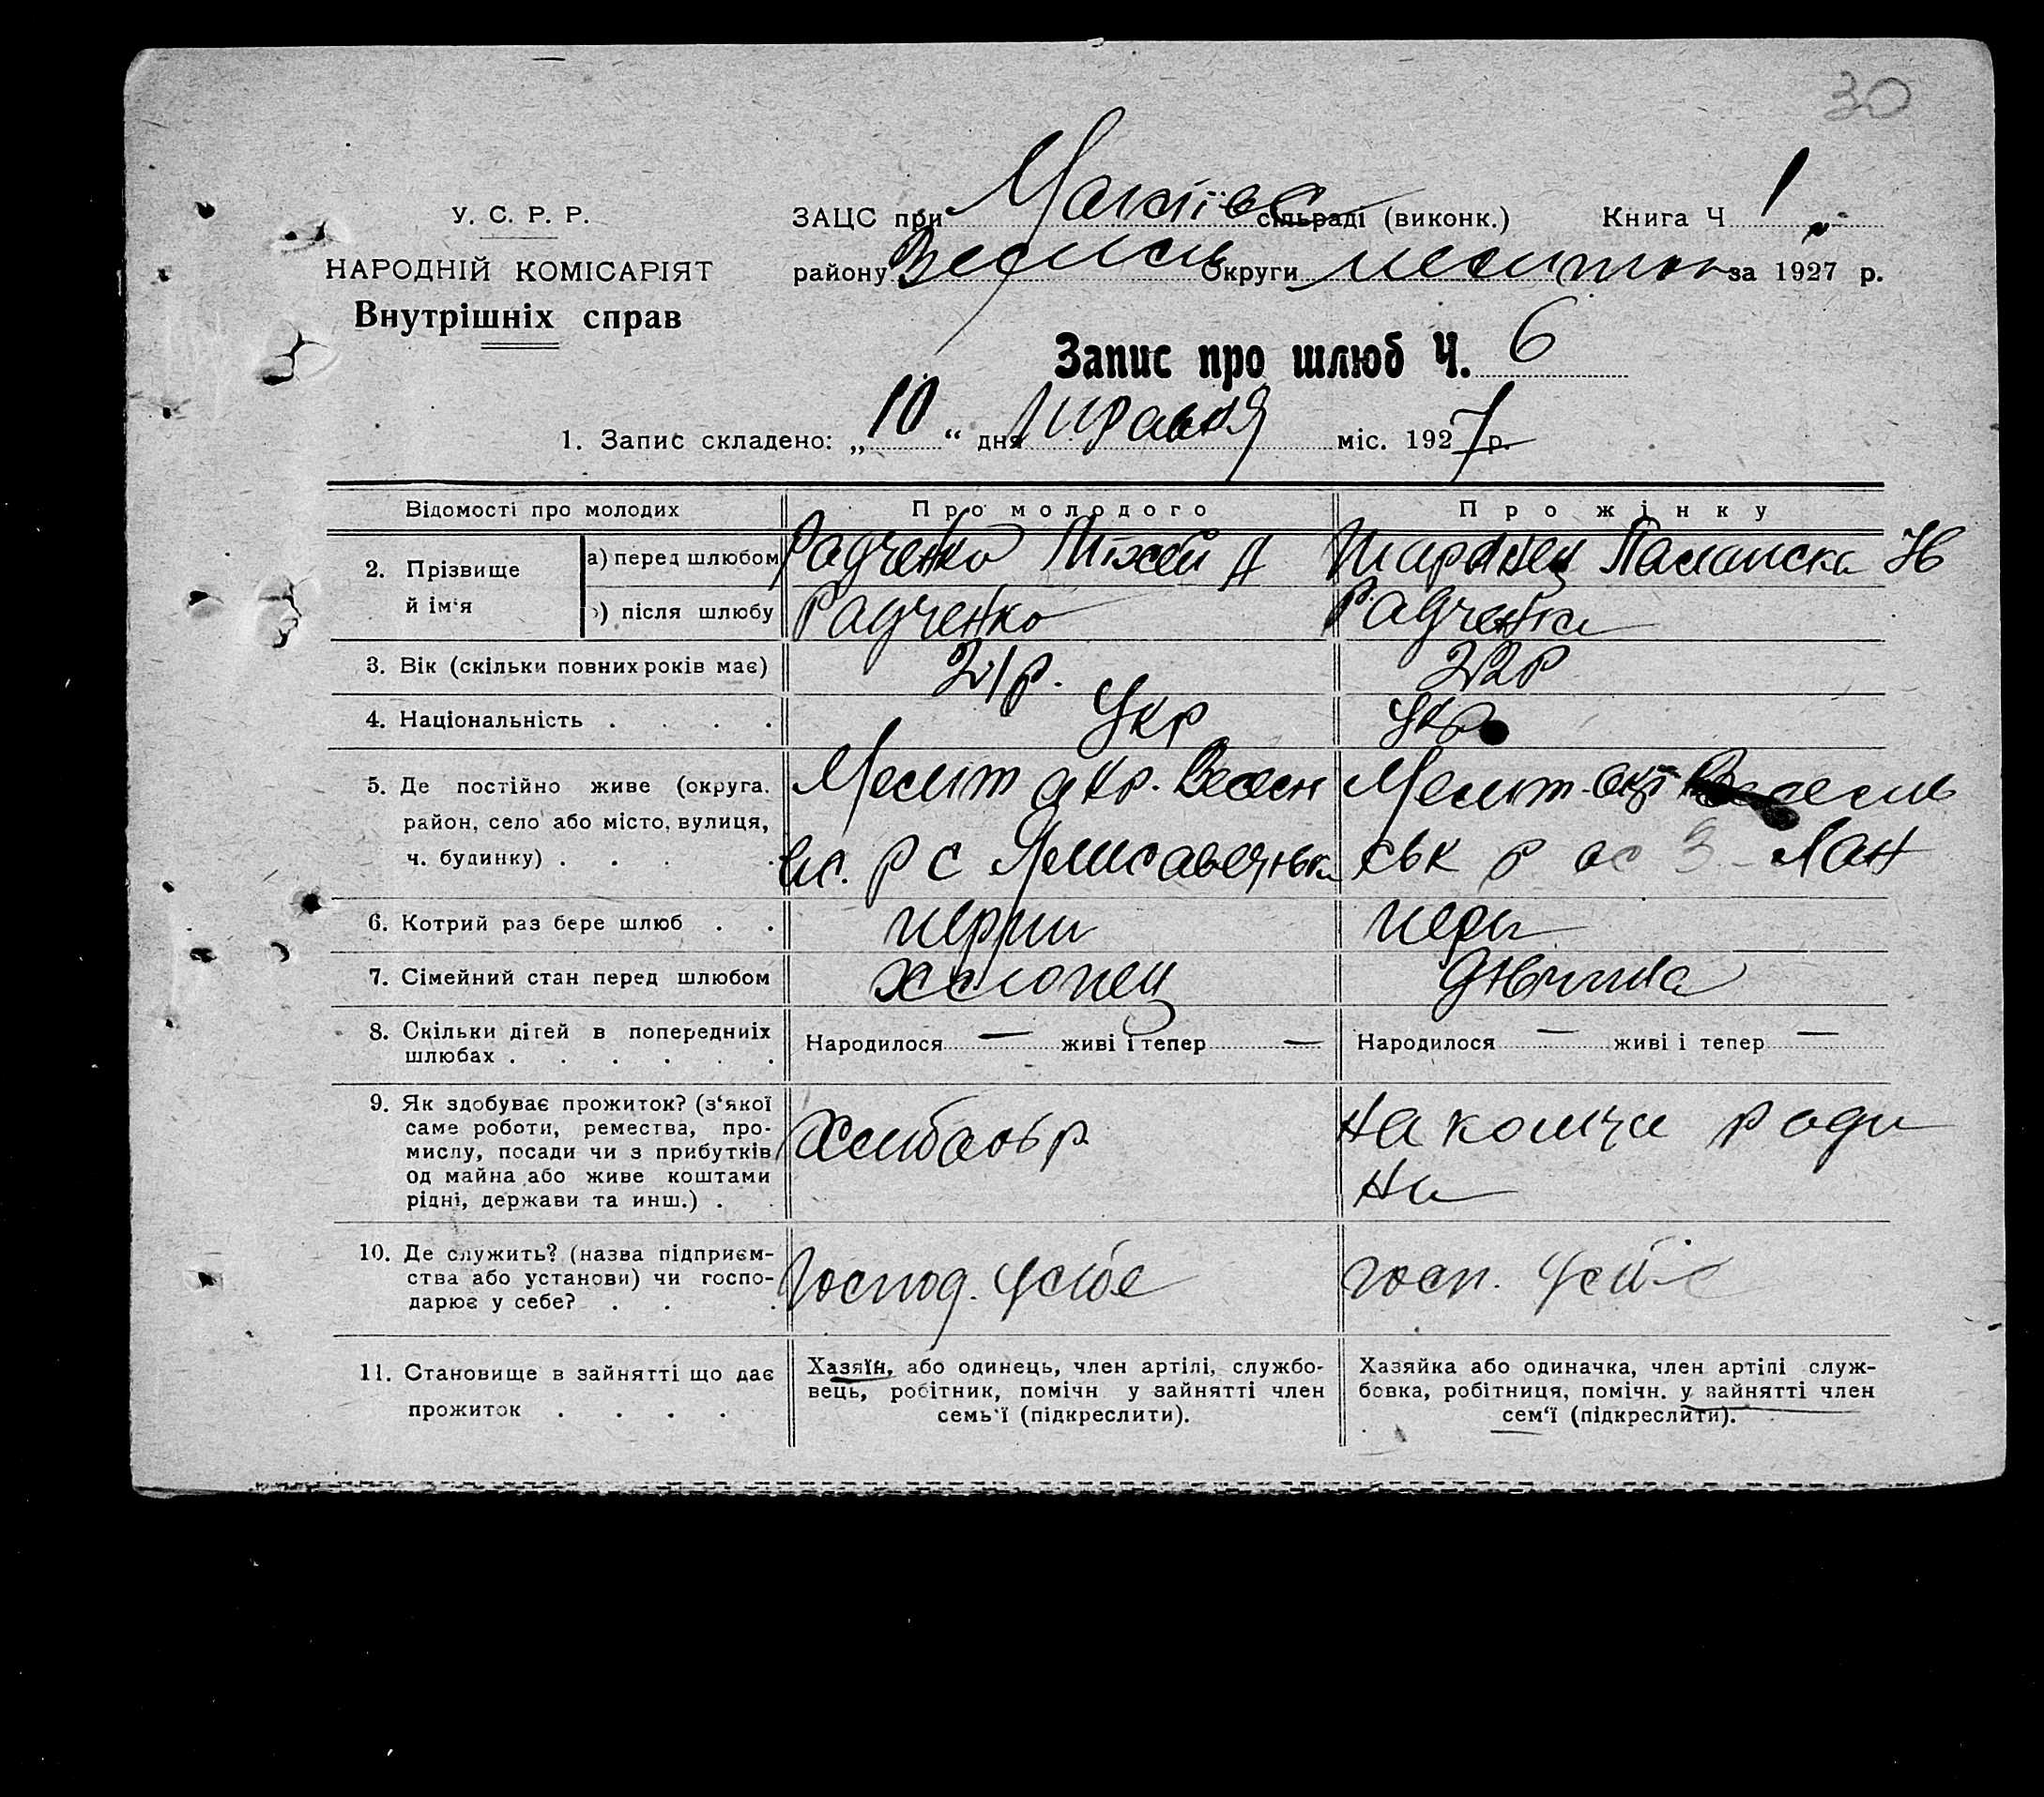 30
У. С. Р. Р.
НАРОДНІЙ КОМІСАРІЯТ
Внутрішніх справ
ЗАЦС при сільраді (виконк.) Книга Ч 1
району Весилсь Округи мелитоп за 1927 р.
Запис про шлюб Ч. 6
1. Запис складено: „10“ дня міс. 1927 р.
Відомості про молодих Про молодого Про жінку
2. Прізвище й ім‘я
а) перед шлюбом Радченко А Н
б) після шлюбу Радченко Радченко
3. Вік (скільки повних років має) 21р. 22р
4. Національність . . . . Укр Укр
5. Де постійно живе (округа, Мелит окр. Весел Мелит окр
район, село або місто, вулиця, р с ськ р с
ч. будинку) . . .
6. Котрий раз бере шлюб . . перши перш
7. Сімейний стан перед шлюбом хлопець дівчина
8. Скільки дітей в попередниіх Народилося — живі і тепер — Народилося — живі і тепер —
шлюбах . . . . . .
9. Як здобуває прожиток? (з‘якої
саме роботи, ремества, про-
мислу, посади чи з прибутків
од майна або живе коштами
рідні, держави та инш.) .
Хлібовр
на кошти роди
ни
10. Де служить? (назва підприєм-
ства або установи) чи госпо-
дарює у себе? . . .
Господ. усібе
госп. усібе
11. Становище в зайнятті що дає
прожиток . . . .
Хазяїн, або одинець, член артілі, службо-
вець, робітник, помічн у зайнятті член
семь‘ї (підкреслити).
Хазяйка або одиначка, член артілі служ-
бовка, робітниця, помічн. у зайнятті член
сем‘ї (підкреслити).